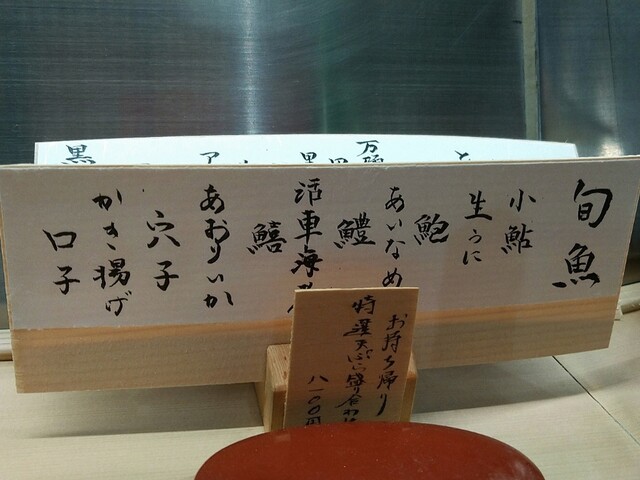 旬魚
小鮎
生うに
鮑
あいなめ
鱧
活車海
鱚
あおりいか
穴子
かき揚げ
口子
お持ち帰り
特選天ぷら盛り合わ
八一〇〇円
万願
黒
ア
黒